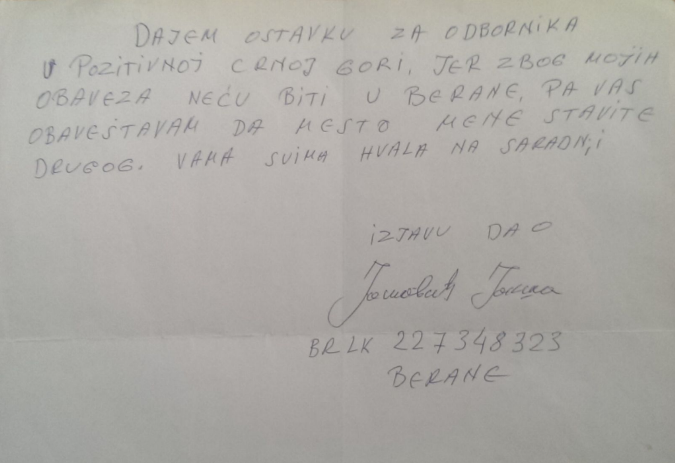 DAJEM OSTAVKU ZA ODBORNIKA
U POZITIVNOJ CRNOJ GORI, JER ZBOG MOJIH
OBAVEZA NEĆU BITI U BERANE, PA VAS
OBAVEŠTAVAM DA MESTO MENE STAVITE
DRUGOG. VAMA SVIMA HVALA NA SARADNJI
IZJAVU DAO
BR LK 227348323
BERANE